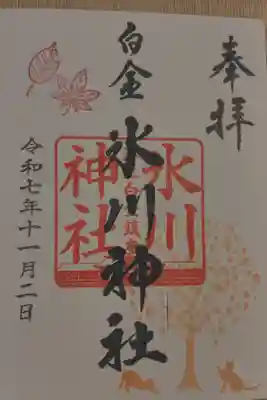 奉拝
白金
氷川神社
氷川
神社
令和七年十一月二日